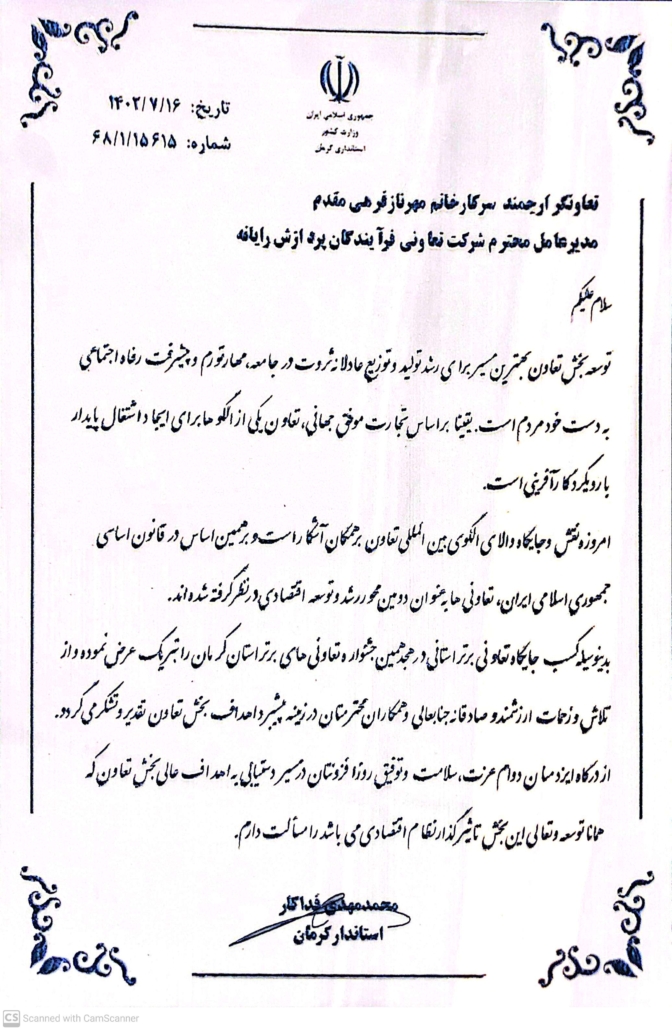 جمهوری اسلامی ایران
وزارت کشور
استانداری کرمان
تاریخ: ۱۴۰۲/۷/۱۶
شماره: ۶۸/۱/۱۵۶۱۵
تعاونگر ارجمند سرکارخانم مهرناز فرهی مقدم
مدیرعامل محترم شرکت تعاونی فرآیندگان پردازش رایانه
سلام علیکم
توسعه بخش تعاون بهترین مسیر برای رشد تولید و توزیع عادلانه ثروت در جامعه، مهار تورم و پیشرفت رفاه اجتماعی
به دست خود مردم است. یقینا براساس تجارت موفق جهانی، تعاون یکی از الگوها برای ایجاد اشتغال پایدار
با رویکرد کارآفرینی است.
امروزه نقش و جایگاه والای الگوی بین المللی تعاون بر همگان آشکار است و بر همین اساس در قانون اساسی
جمهوری اسلامی ایران، تعاونی ها به عنوان دومین محور رشد و توسعه اقتصادی در نظر گرفته شده اند.
بدینوسیله کسب جایگاه تعاونی برتر استانی در هجدهمین جشنواره تعاونی های برتر استان کرمان را تبریک عرض نموده و از
تلاش و زحمات ارزشمند و صادقانه جنابعالی و همکاران محترمتان در زمینه پیشبرد اهداف بخش تعاون تقدیر و تشکر می گردد.
از درگاه ایزد منان دوام عزت، سلامت و توفیق روزافزونتان در مسیر دستیابی به اهداف عالی بخش تعاون که
همانا توسعه و تعالی این بخش تاثیرگذار نظام اقتصادی می باشد را مسألت دارم.
محمدمهدی فداکار
استاندار کرمان
CS Scanned with CamScanner